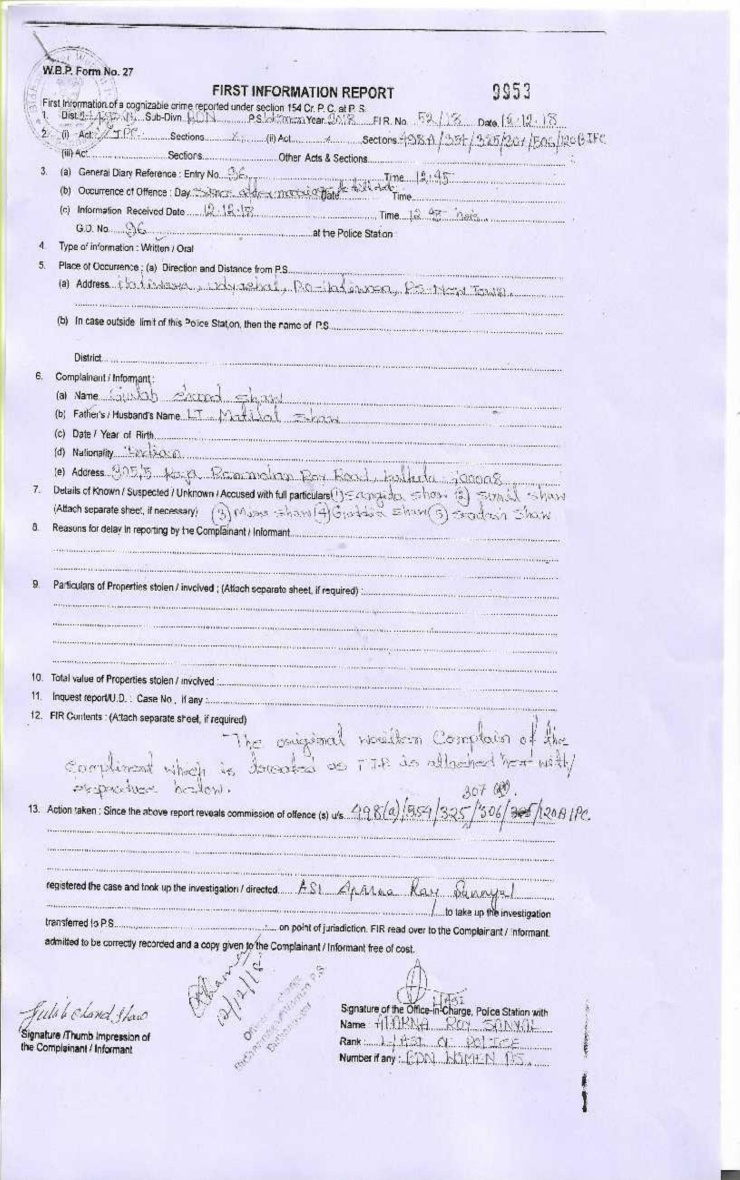 W.B.P. Form No. 27
FIRST INFORMATION REPORT 9953
First Information of a cognizable crime reported under section 154 Cr. P. C. at P. S.
1. Dist. Sub-Divn. P.S. Women Year 2018 F.I R. No. 52/18 Date 12.12.18
2. (i) Act IPC Sections (ii) Act Sections 498A/354/325/307/506/120B IPC
(iii) Act Sections Other Acts & Sections
3. (a) General Diary Reference : Entry No. 96 Time 12.45
(b) Occurrence of Offence : Day Since after marriage to till date Date Time
(c) Information Received Date 12.12.18 Time 12.45 hrs
G.D. No. 96 at the Police Station :
4. Type of information : Written / Oral
5. Place of Occurrence ; (a) Direction and Distance from P.S.
(a) Address Hatiwara, PO-Hatiwara, PS-New Town.
(b) In case outside limit of this Police Station, then the name of P.S.
District
6. Complainant / Informant :
(a) Name Gulab Chand Shaw
(b) Father's / Husband's Name LT Matilal Shaw
(c) Date / Year of Birth
(d) Nationality Indian
(e) Address Raja Rammohan Roy Road, Kolkata - 700008
7. Details of Known / Suspected / Unknown / Accused with full particulars (1) Sangida Shaw (2) Sunil Shaw
(Attach separate sheet, if necessary) (3) Mina Shaw (4) Shaw (5) Shaw
8. Reasons for delay in reporting by the Complainant / Informant
9. Particulars of Properties stolen / involved ; (Attach separate sheet, if required) :
10. Total value of Properties stolen / involved :
11. Inquest report/U.D. : Case No., if any :
12. FIR Contents : (Attach separate sheet, if required)
The original written Complain of the
Complinent which is treated as FIR is attached here with/
reproduce below.
307
13. Action taken : Since the above report reveals commission of offence (s) u/s. 498(a)/354/325/506/120B IPC.
registered the case and took up the investigation / directed ASI Aparna Roy Sannyal
to take up the investigation
transferred to P.S. on point of jurisdiction. FIR read over to the Complainant / Informant.
admitted to be correctly recorded and a copy given to the Complainant / Informant free of cost.
12/12/18
Officer-in-Charge
Women P.S
Gulab Chand Shaw
Signature /Thumb Impression of
the Complainant / Informant
Signature of the Office-in-Charge, Police Station with
Name : APARNA ROY SANYAL
Rank : L/ASI OF POLICE
Number if any : BDN WOMEN P.S.